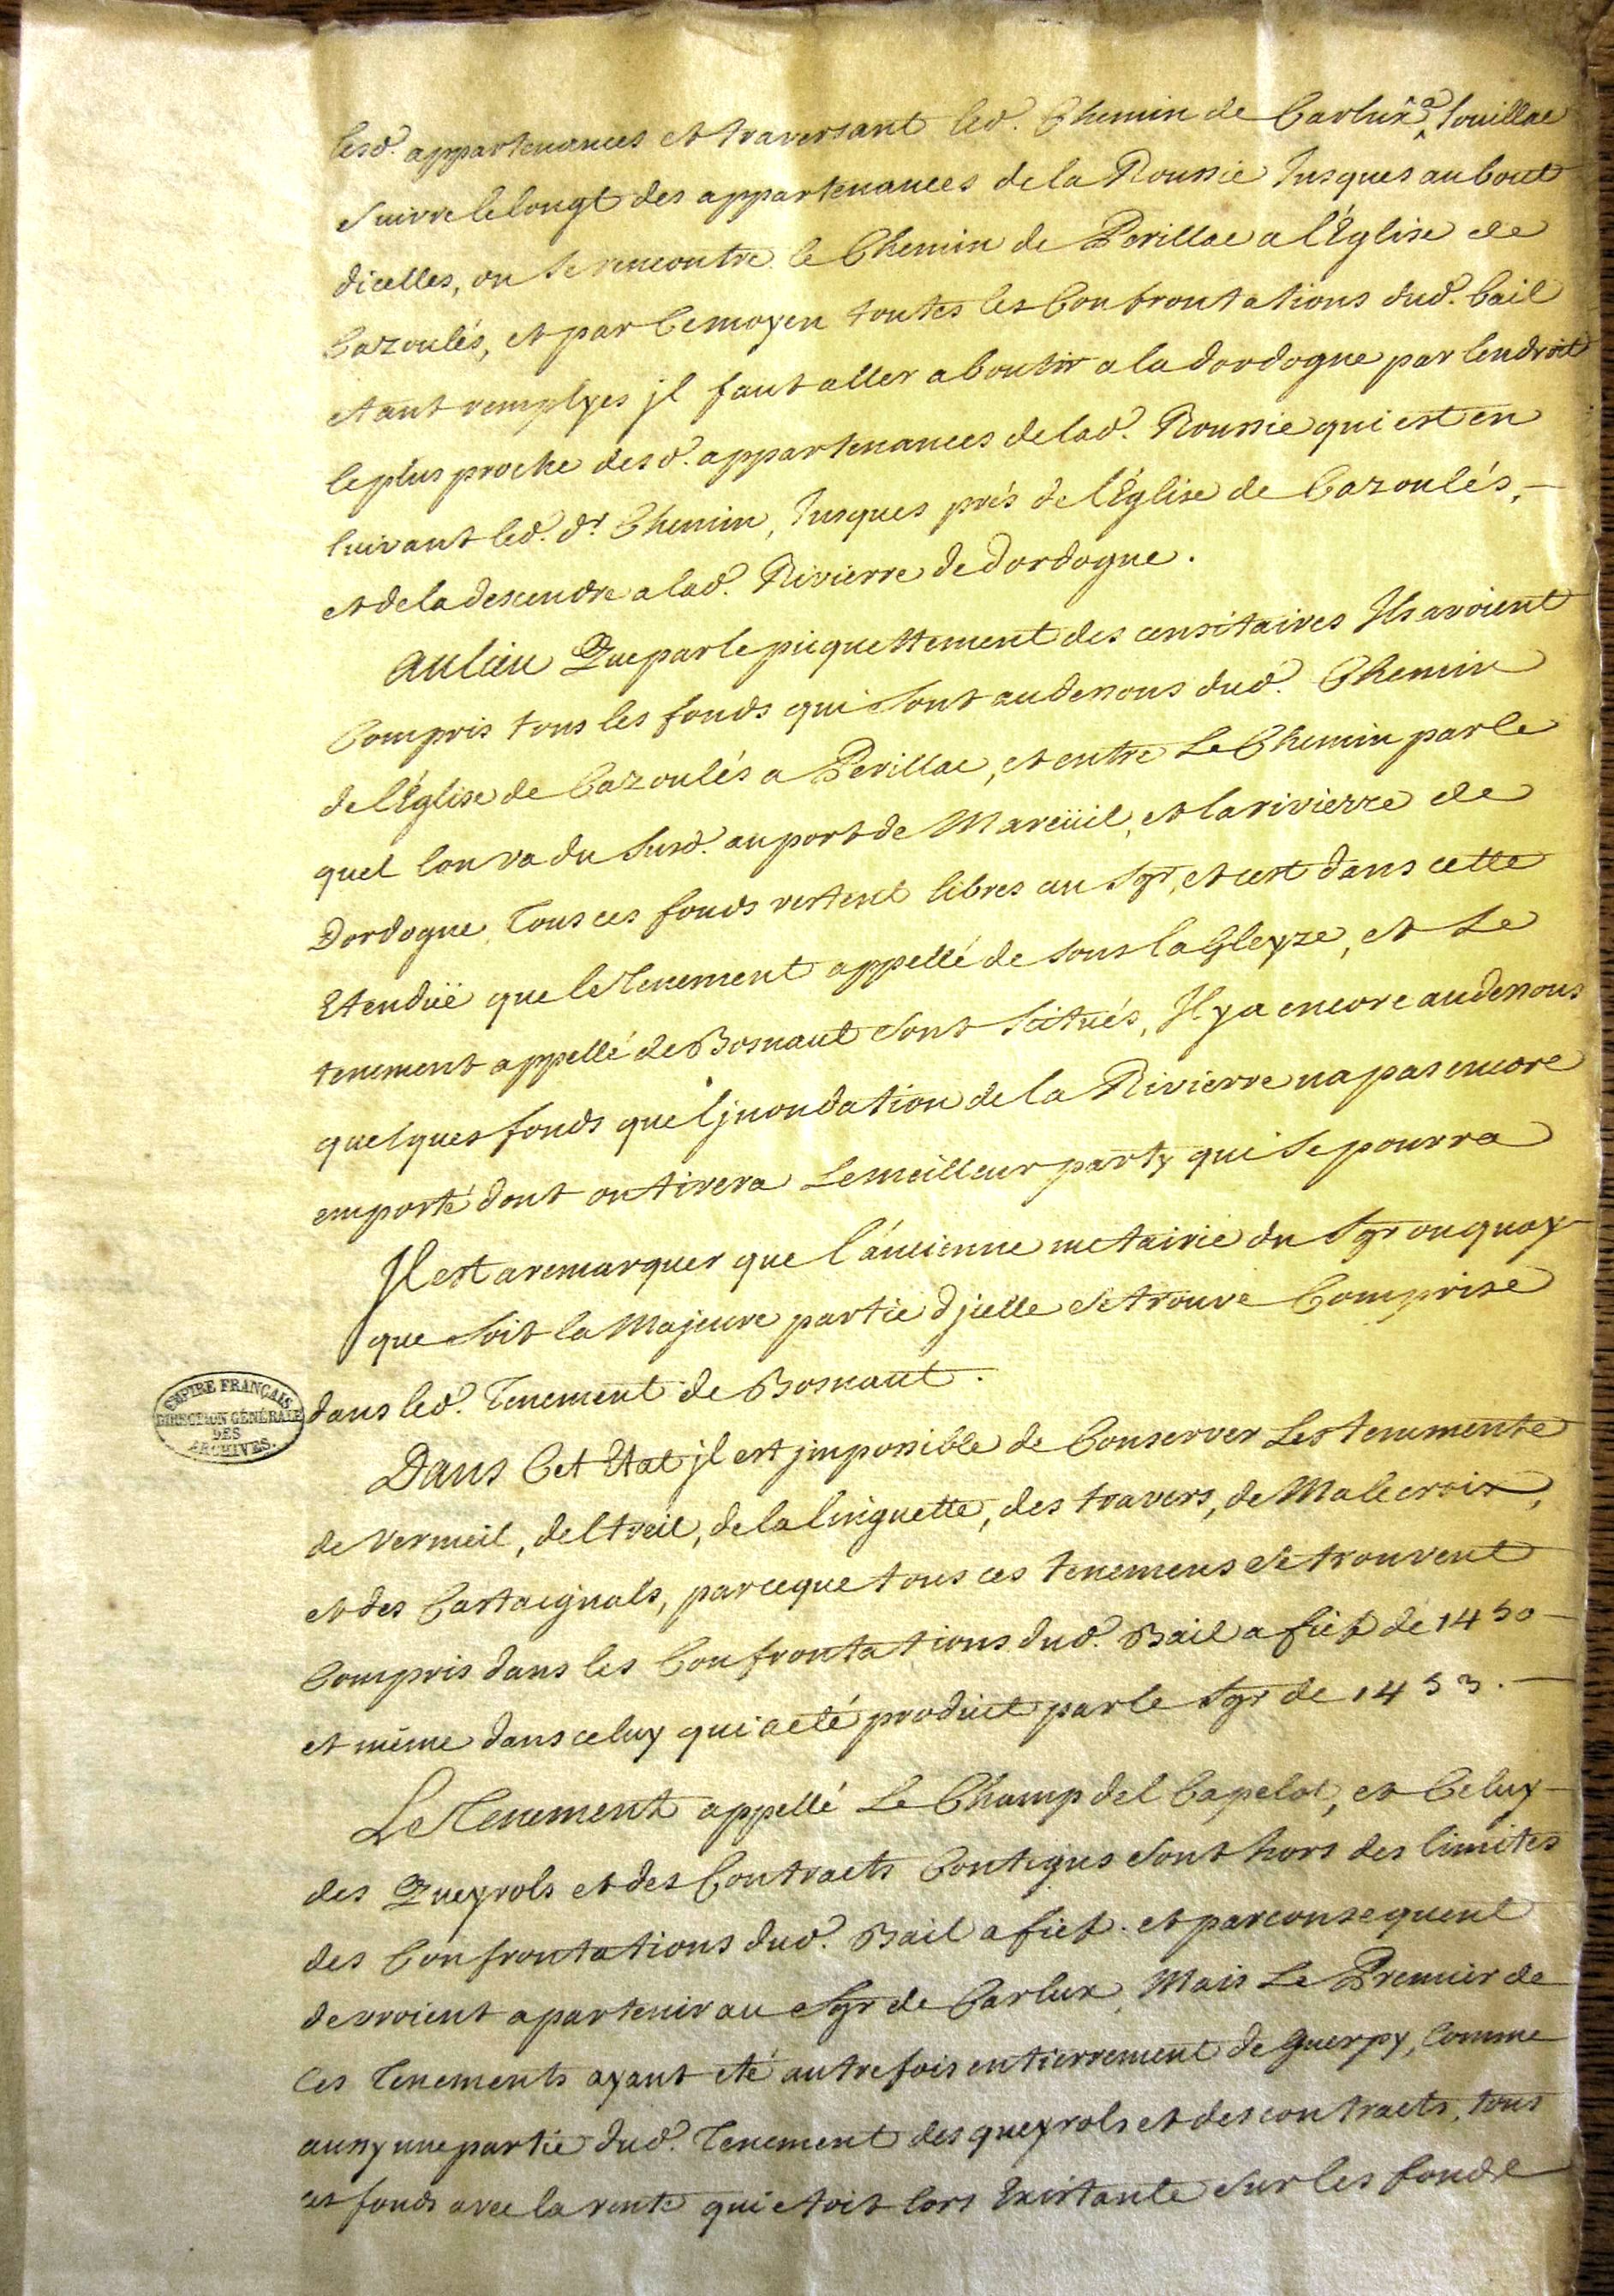 lesd. appartenances et traversant led. Chemin de Carlux a Souillac
Suivre le longt des appartenances de la Roussie Jusques au bout
dicelles, ou Se rencontre le Chemin de Perillac a l'Église de
Cazoulés, et par Cemoyen toutes les Confrontations dud. bail
etant remplyes jl faut aller aboutir a la dordogne par lendroit
le plus proche desd. appartenances de lad. Roussie qui est en
Suivant led. dr. Chemin, Jusques prés de l'Église de Cazoulés,
et de la descendre a lad. Rivierre de Dordogne.
Au lieu Que par le picquettement des censitaires Ils avoient
Compris tous les fonds qui Sont audessous dud. Chemin
de l'Église de Cazoulés a Perillac, et entre Le Chemin par le
quel lon va du Susd. au port de Mareüil, et la rivierre de
Dordogne, Tous ces fonds restent libres au Sgr, et cest dans cette
Etendüe que le Tenement appellé de Sous la Gleyze, et Le
tenement appellé de Bosnaut Sont Scitués, Il y a encore audessous
quelques fonds que l'jnondation de la Rivierre na pas encore
emporté dont on tirera Le meilleur party qui Se pourra
Il est a remarquer que l'áncienne metairie du Sgr ou quoy
que Soit la Majeure partie djcelle Se trouve Comprise
dans led. Tenement de Bosnaut.
EMPIRE FRANÇAIS
DIRECTION GÉNÉRALE
DES
ARCHIVES.
Dans Cet Etat jl est jmpossible de Conserver Les tenements
de Vermeil, del treil, de la linguette, des travers, de Malecroix,
et des Castaignals, parceque tous ces tenemens Se trouvent
Compris dans les Confrontations dud. Bail a fief de 1450
et même dans celuy qui a eté produit par le Sgr de 1453.
Le Tenement appellé Le Champ del Capelot, et Celuy
des Queyrols et des Contracts Contigus Sont hors des limites
des Confrontations dud. Bail a fief. et par consequent
devroient apartenir au Sgr de Carlux, Mais Le Premier de
Ces Tenements ayant eté autrefois entierrement deguerpy, Comme
aussy une partie dud. Tenement des queyrols et des contracts, tous
ces fonds avec la rente qui etoit lors Existante Sur les fonds